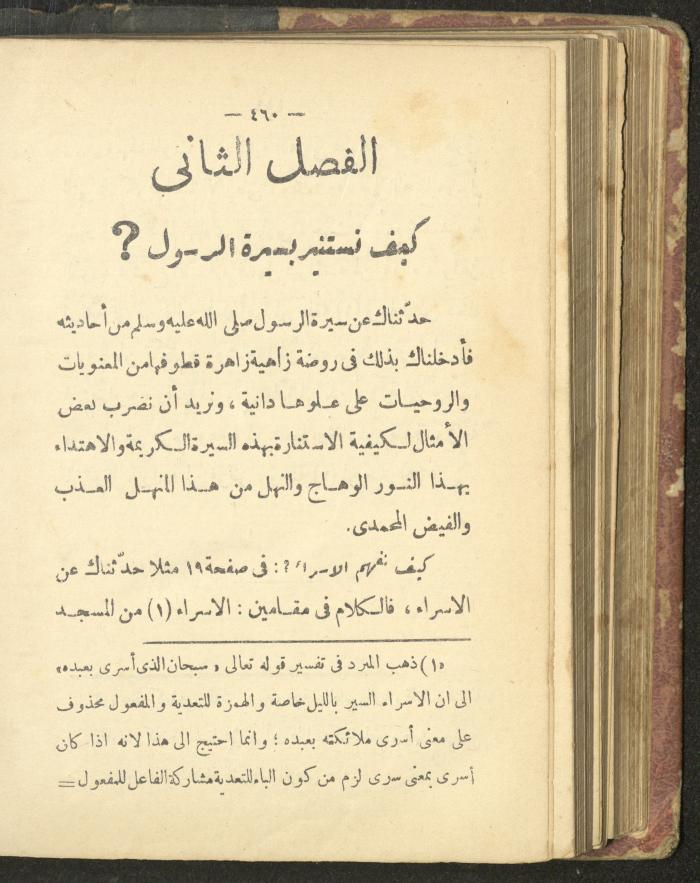 — ٤٦٠ —
الفصل الثانى
كيف نستنير بسيرة الرسول ؟
حدّثناك عن سيرة الرسول صلى الله عليه وسلم من أحاديثه
فأدخلناك بذلك فى روضة زاهية زاهرة قطوفها من المعنويات
والروحيات على علوها دانية ، ونريد أن نضرب بعض
الأمثال لكيفية الاستنارة بهذه السيرة الكريمة والاهتداء
بهذا النور الوهاج والنهل من هذا المنهل العذب
والفيض المحمدى .
كيف نفهم الاسراء ؟ : فى صفحة ١٩ مثلا حدّثناك عن
الاسراء ، فالكلام فى مقامين : الاسراء (١) من المسجد
«١) ذهب المبرد فى تفسير قوله تعالى « سبحان الذى أسرى بعبده »
الى ان الاسراء السير بالليل خاصة والهمزة للتعدية والمفعول محذوف
على معنى أسرى ملائكته بعبده ؛ وانما احتيج الى هذا لانه اذا كان
أسرى بمعنى سرى لزم من كون الباء للتعدية مشاركة الفاعل للمفعول =